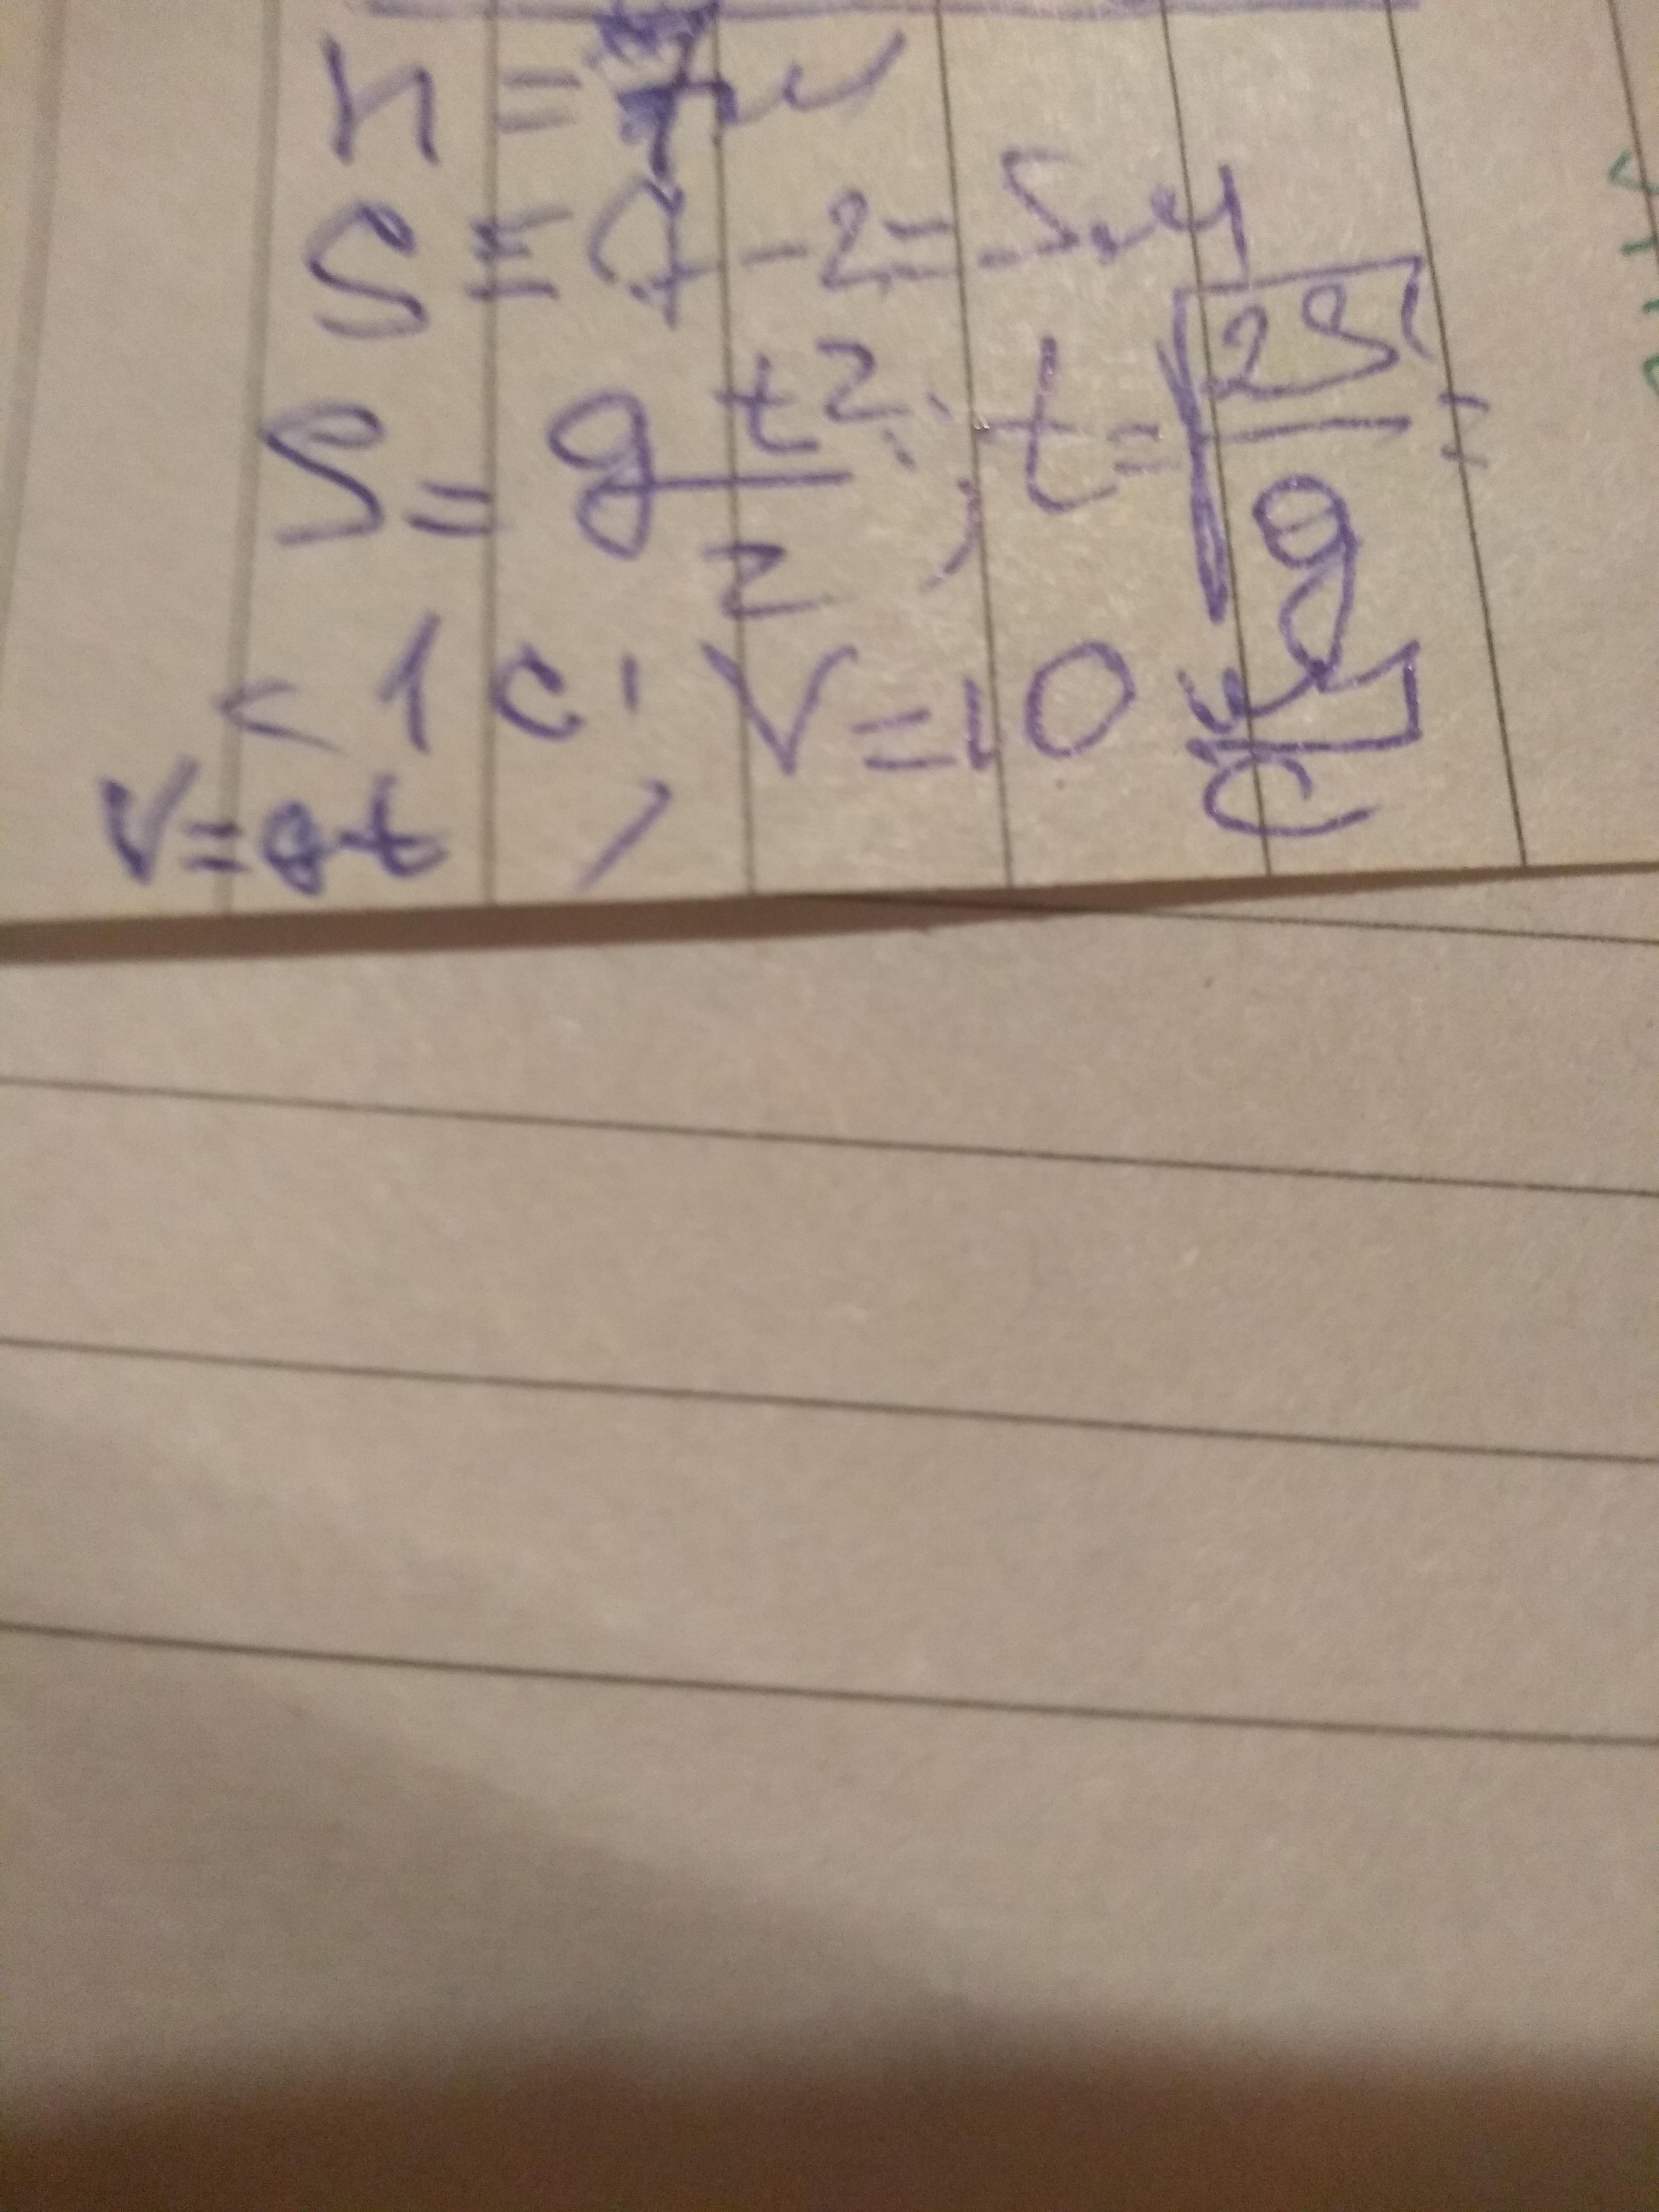 h = 7м
S = 7 - 2 = 5м
S = g t²/2 ; t = √(2S/g) =
= 1 c; V = 10 м/с
V = gt